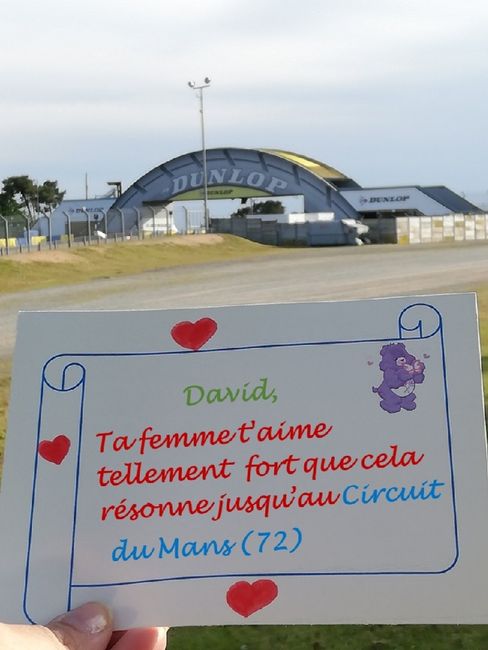 DUNLOP
DUNLOP
DUNLOP
David,
Ta femme t'aime
tellement fort que cela
résonne jusqu'au Circuit
du Mans (72)